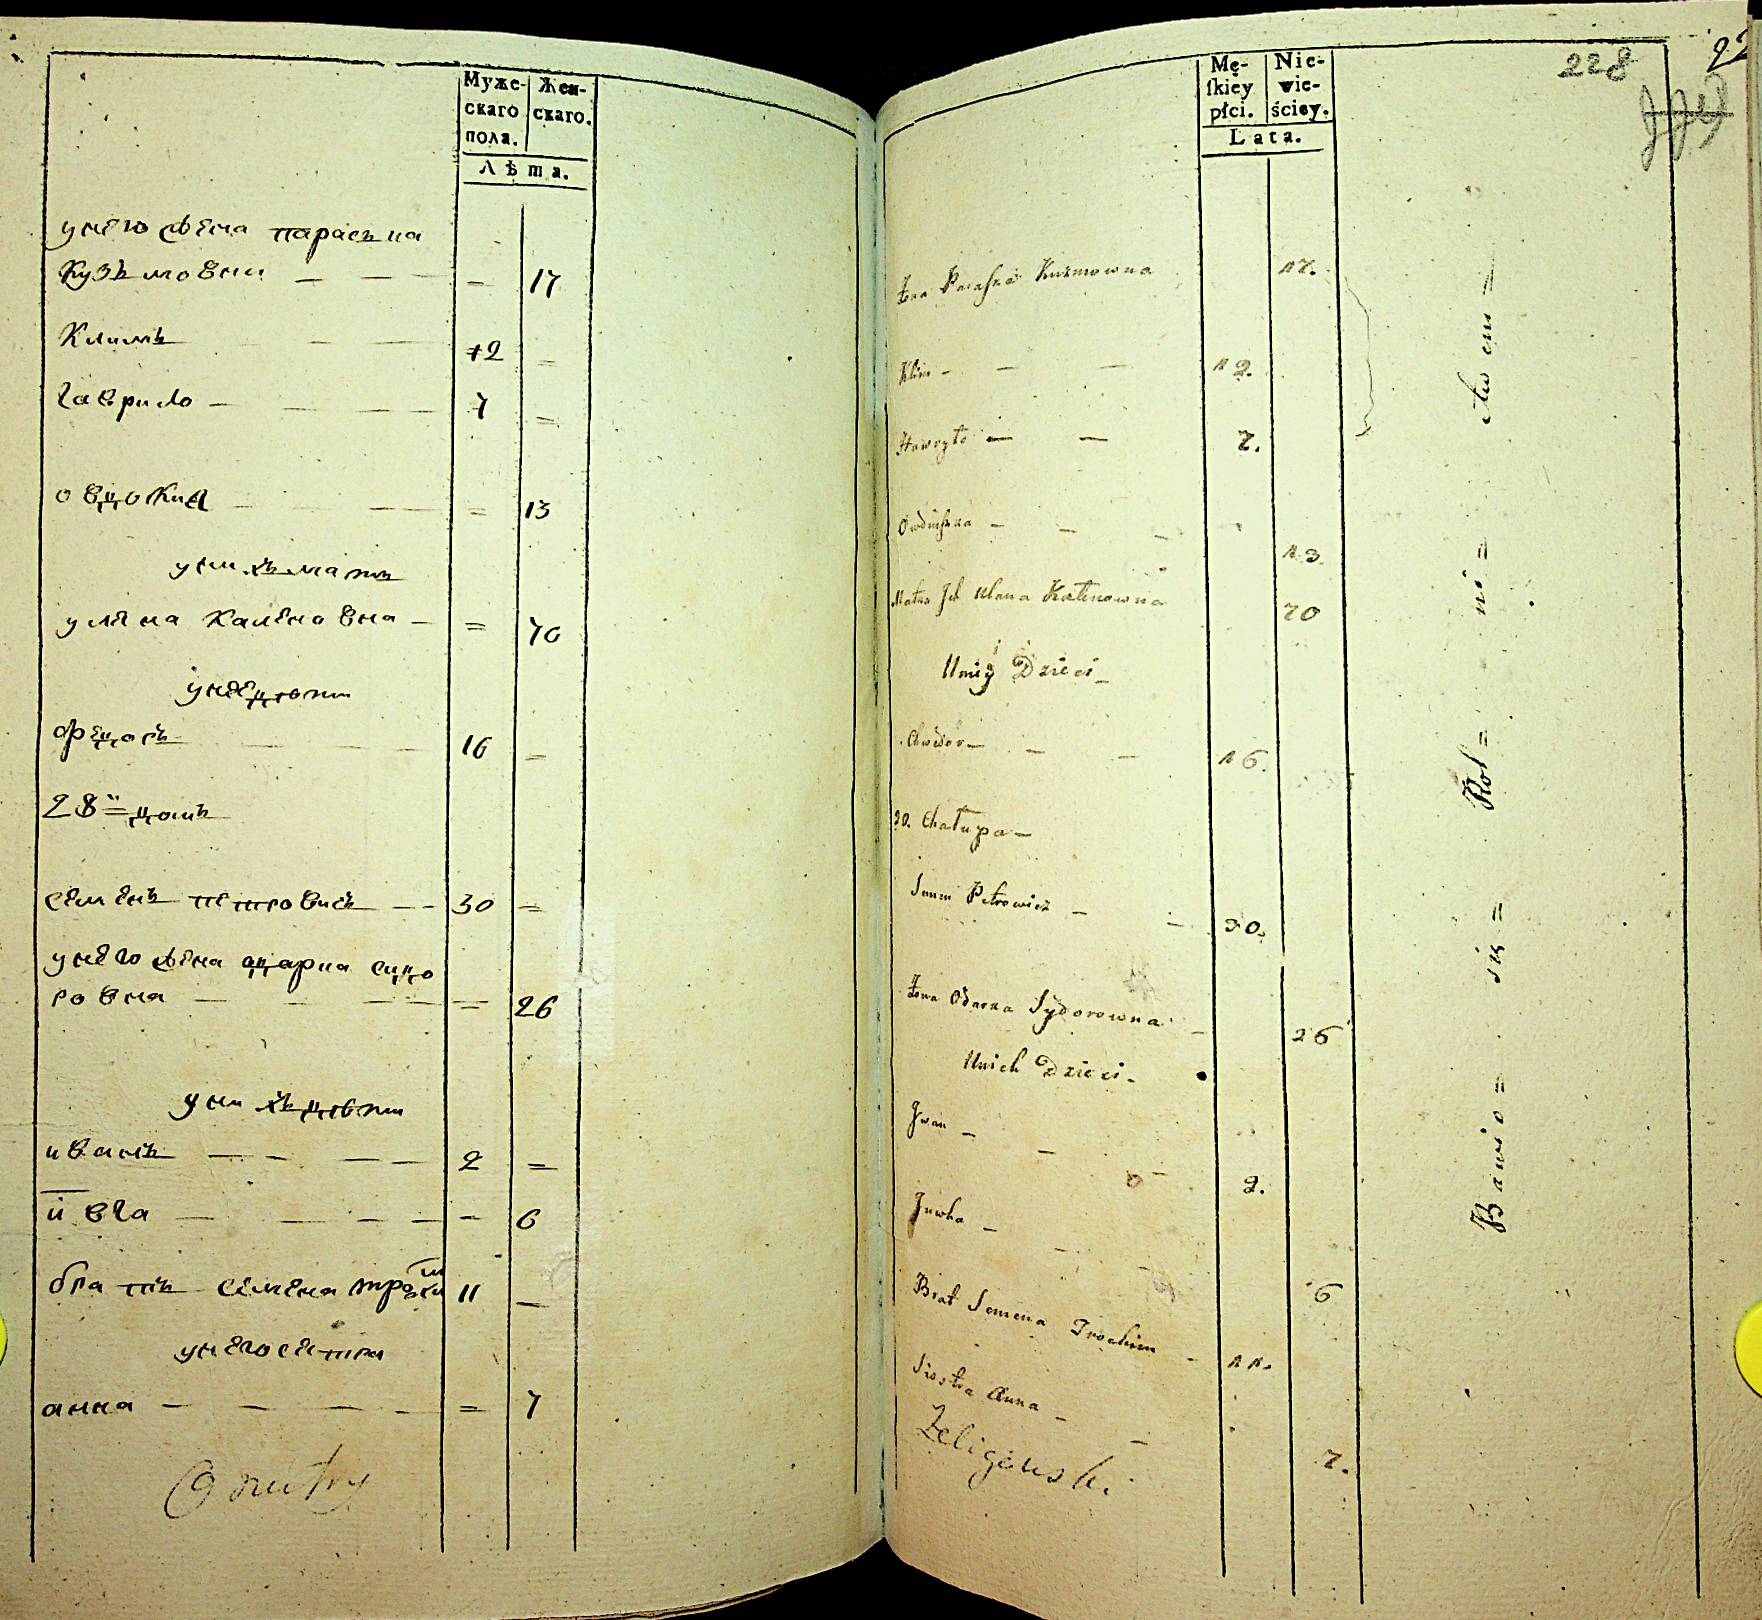 Муже-
скаго
пола.
Жен-
скаго.
Лѣта.
у него жена параска
Кузьмовни — — — 17
Климъ — — 12 =
гаврило — — — 7 =
овдокиа — — — = 13
у нихъ мать
уляна каленовна — = 70
у нее дети
федосъ — — — 16 =
28 й = домъ
семенъ петровичъ — — 30 =
у него жена одарка сидо
ровна — — — = 26
у нихъ дети
иванъ — — — — 2 =
ивга — — — — - 6
братъ семена трохим 11 —
у него сестра
анна — — — — = 7
Dmitry
228
Mę-
ſkiey
płci.
Nie-
wie-
ściey.
Lata.
Żona Paraska Kuzmowna 17.
Klim — — — 12.
Hawryło — — 7.
Owdiuszka — — — 13
Matka Ich Ulana Kalenowna 70
U niéy Dzieci —
— — 16.
30. Chałupa —
Semen Petrowicz — — 30.
Żona Odarka Sydorowna — 26
U nich Dzieci.
Iwan — — — 2.
Juwha — — 6
Brat Semena Trochim — 11.
Siostra Anna — — 7.
Żeligowski
Bawio = się = Rol = ni = ctwem =